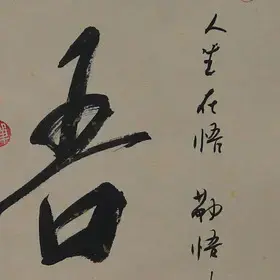 吾
人生在悟 勤悟